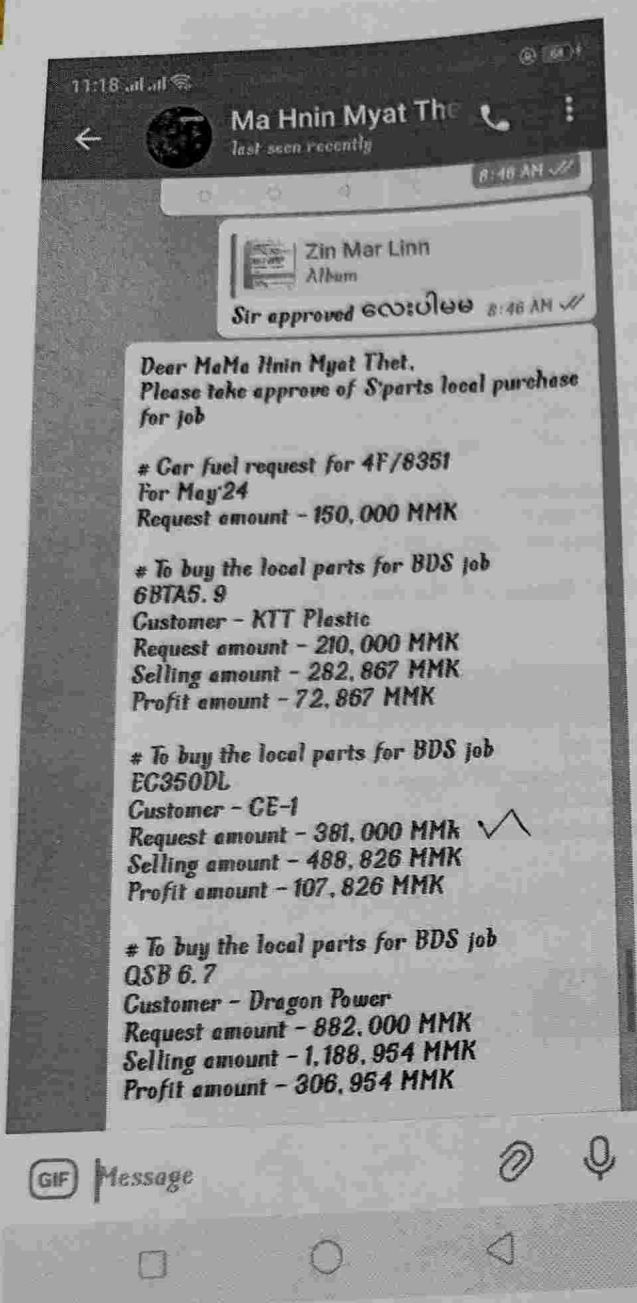 11:18
Ma Hnin Myat The
last seen recently
8:46 AM
Zin Mar Linn
Album
Sir approved လေးပါမမ 8:46 AM
Dear MaMa Hnin Myat Thet,
Please take approve of S'parts local purchase
for job
# Car fuel request for 4F/8351
For May'24
Request amount - 150,000 MMK
# To buy the local parts for BDS job
6BTA5.9
Customer - KTT Plastic
Request amount - 210,000 MMK
Selling amount - 282,867 MMK
Profit amount - 72,867 MMK
# To buy the local parts for BDS job
EC350DL
Customer - CE-1
Request amount - 381,000 MMk
Selling amount - 488,826 MMK
Profit amount - 107,826 MMK
# To buy the local parts for BDS job
QSB 6.7
Customer - Dragon Power
Request amount - 882,000 MMK
Selling amount - 1,188,954 MMK
Profit amount - 306,954 MMK
GIF Message